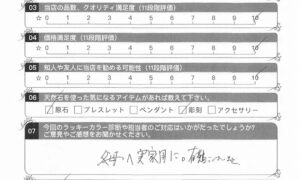 03 当店の品数、クオリティ満足度（11段階評価）
☆ 0 1 2 3 4 5 6 7 8 9 10
04 価格満足度（11段階評価）
☆ 0 1 2 3 4 5 6 7 8 9 10
05 知人や友人に当店を勧める可能性（11段階評価）
☆ 0 1 2 3 4 5 6 7 8 9 10
06 天然石を使った気になるアイテムがあれば教えて下さい。
☑原石 □ブレスレット □ペンダント ☑彫刻 □アクセサリー
07 今回のラッキーカラー診断や担当者のご対応はいかがだったでしょうか?
ご意見やご感想をお聞かせください。